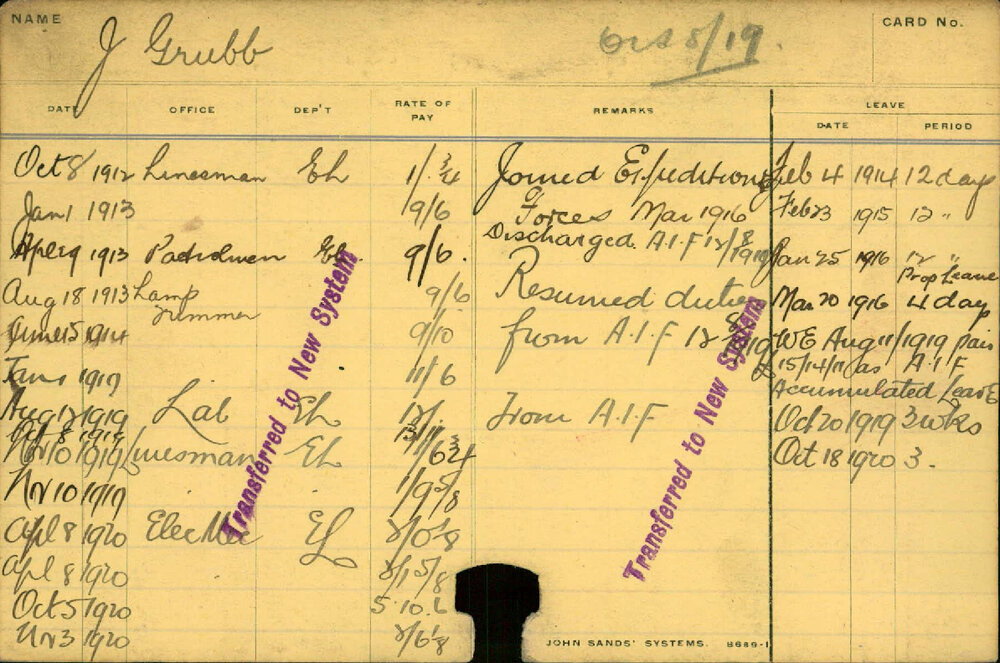 NAME
J Grubb
5/19.
CARD No.
DATE OFFICE DEP'T RATE OF PAY REMARKS LEAVE
DATE PERIOD
Oct 8/1912 Linesman Eh 1/. 3/4 Joined Expeditiong Feb 4 1914 12 days
Jan 1 1913 9/6 Forces Mar 1916 Feb 23 1915 12 "
1913 Eh 9/6. Discharged A.I.F 12/8/1919 Jan 25 1916 12 "
Prop Leave
Aug 18 1913 Lamp 9/6 Resumed duties Mar 20 1916 4 days
Trimmer
June 15 1914 9/10 from A.I.F 12 8 19 WE Aug 11/1919 pais
15/14/11 as A.I.F
Jan 1 1919 11/6 Accumulated Leave
Aug 12 1919 Lab Eh 12/. From A.I.F Oct 20 1919 3 wks
Oct 8 1919
Nov 10 1919 Linesman Eh Oct 18 1920 3.
Nov 10 1919 1/9 5/8
Apl 8 1920 Elec Mec
Apl 8 1920 2/1 5/8
Oct 5 1920 5.10.6
Nov 3 1920 2/6 1/8
Transferred to New System
Transferred to New System
JOHN SANDS' SYSTEMS. 8689-1